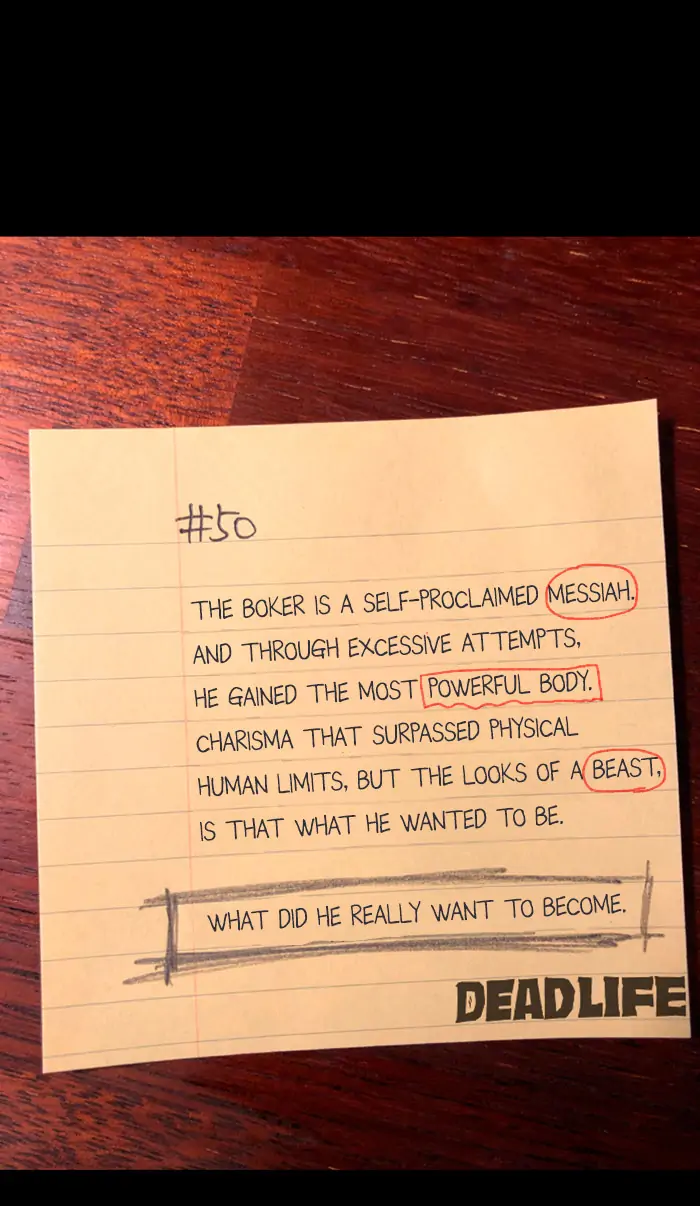 #50
THE BOKER IS A SELF-PROCLAIMED MESSIAH.
AND THROUGH EXCESSIVE ATTEMPTS,
HE GAINED THE MOST POWERFUL BODY.
CHARISMA THAT SURPASSED PHYSICAL
HUMAN LIMITS, BUT THE LOOKS OF A BEAST,
IS THAT WHAT HE WANTED TO BE.
WHAT DID HE REALLY WANT TO BECOME.
DEADLIFE